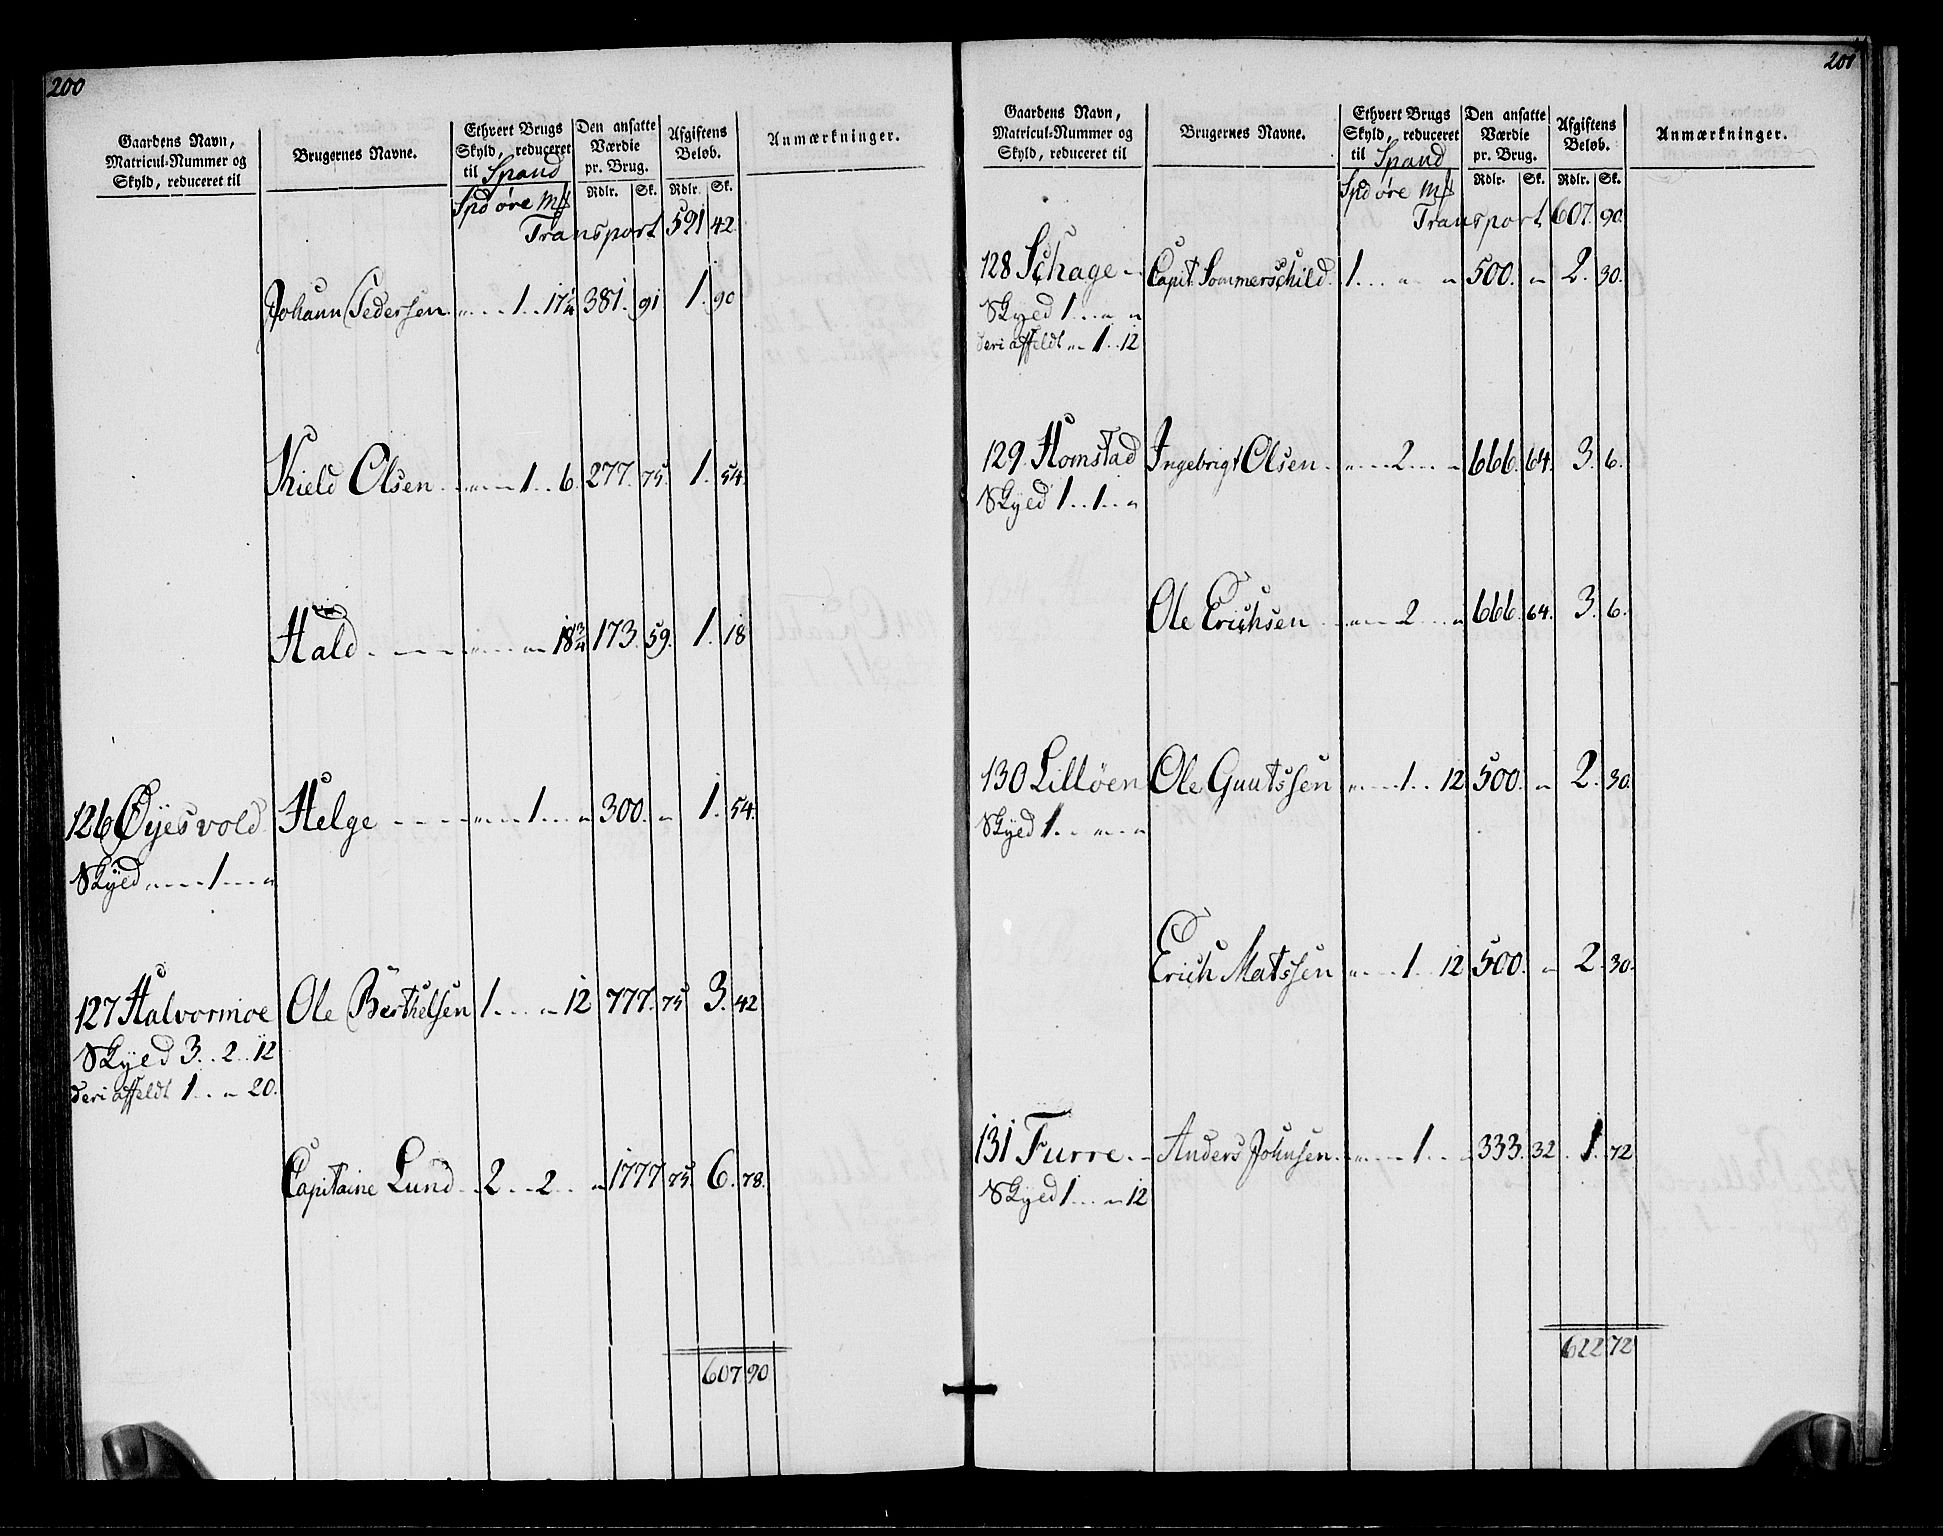 200
Gaardens Navn, Matricul-Nummer og Skyld, reduceret til
Brugernes Navne.
Ethvert Brugs Skyld, reduceret til Spand
Den ansatte Værdie pr. Brug.
Afgiftens Beløb.
Anmærkninger.
Rdlr. Sk. Rdlr. Sk.
Spd øre Mk
Transport 591 42
Johann Pedersen „ 1 17 1/4 381. 91 1. 90
Kield Olsen „ 1 6. 277. 75. 1. 54.
Hald „ „ 173. 59. 1. 18
126 Øyesvold Helge „ 1 „ 300. „ 1. 54.
Skyed „ 1 „
127 Halvormoe Ole Berthelsen 1 „ 12 777. 75 3. 42
Skyed 3. 2. 12
deri affeldt 1 „ 20.
Capitaine Lund 2 2 „ 1777 75. 6. 78.
607 90
201
Gaardens Navn, Matricul-Nummer og Skyld, reduceret til
Brugernes Navne.
Ethvert Brugs Skyld, reduceret til Spand
Den ansatte Værdie pr. Brug.
Afgiftens Beløb.
Anmærkninger.
Rdlr. Sk. Rdlr. Sk.
Spd øre Mk
Transport 607. 90
128 Schage Capit. Sommerschild. 1 „ „ 500. „ 2. 30.
Skyed 1 „ „
deri affeldt „ 1 12
129. Homstad Ingebrigt Olsen „ 2 „ 666. 64. 3. 6.
Skyed 1 1 „
Ole Erichsen „ 2 „ 666. 64. 3. 6.
130 Lilløen Ole Guutssen „ 1 12 500. „ 2. 30.
Skyed 1 „ „
Erich Matssen „ 1 12 500. „ 2. 30.
131 Furre Anders Johnsen „ 1 „ 333. 32. 1. 72
Skyed 1 „ 12
622 72